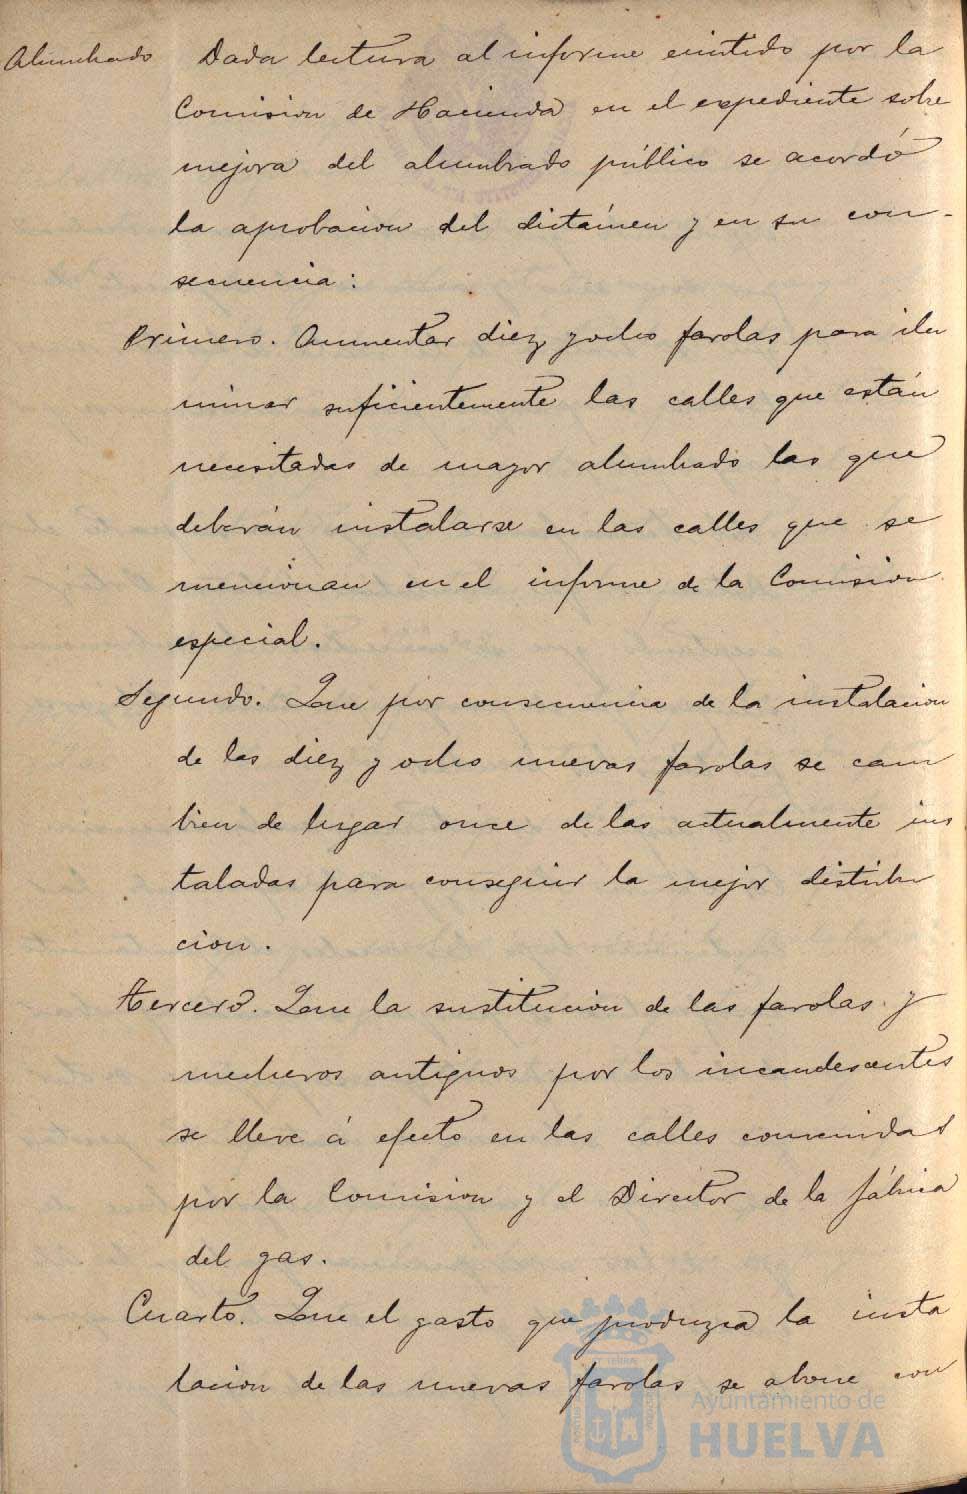 Alumbrado
Dada lectura al informe emitido por la
Comision de Hacienda en el expediente sobre
mejora del alumbrado público se acordó
la aprobacion del dictámen y en su con-
secuencia:
Primero. Aumentar diez y ocho farolas para ilu
minar suficientemente las calles que están
necesitadas de mayor alumbrado las que
deberán instalarse en las calles que se
mencionan en el informe de la Comision
especial.
Segundo. Que por consecuencia de la instalacion
de las diez y ocho nuevas farolas se cam
bien de lugar once de las actualmente ins
taladas para conseguir la mejor distribu
cion.
Tercero. Que la sustitucion de las farolas y
mecheros antiguos por los incandescentes
se lleve á efecto en las calles convenidas
por la Comision y el Director de la fábrica
del gas.
Cuarto. Que el gasto que produzca la insta
lacion de las nuevas farolas se abone con
Ayuntamiento de
HUELVA